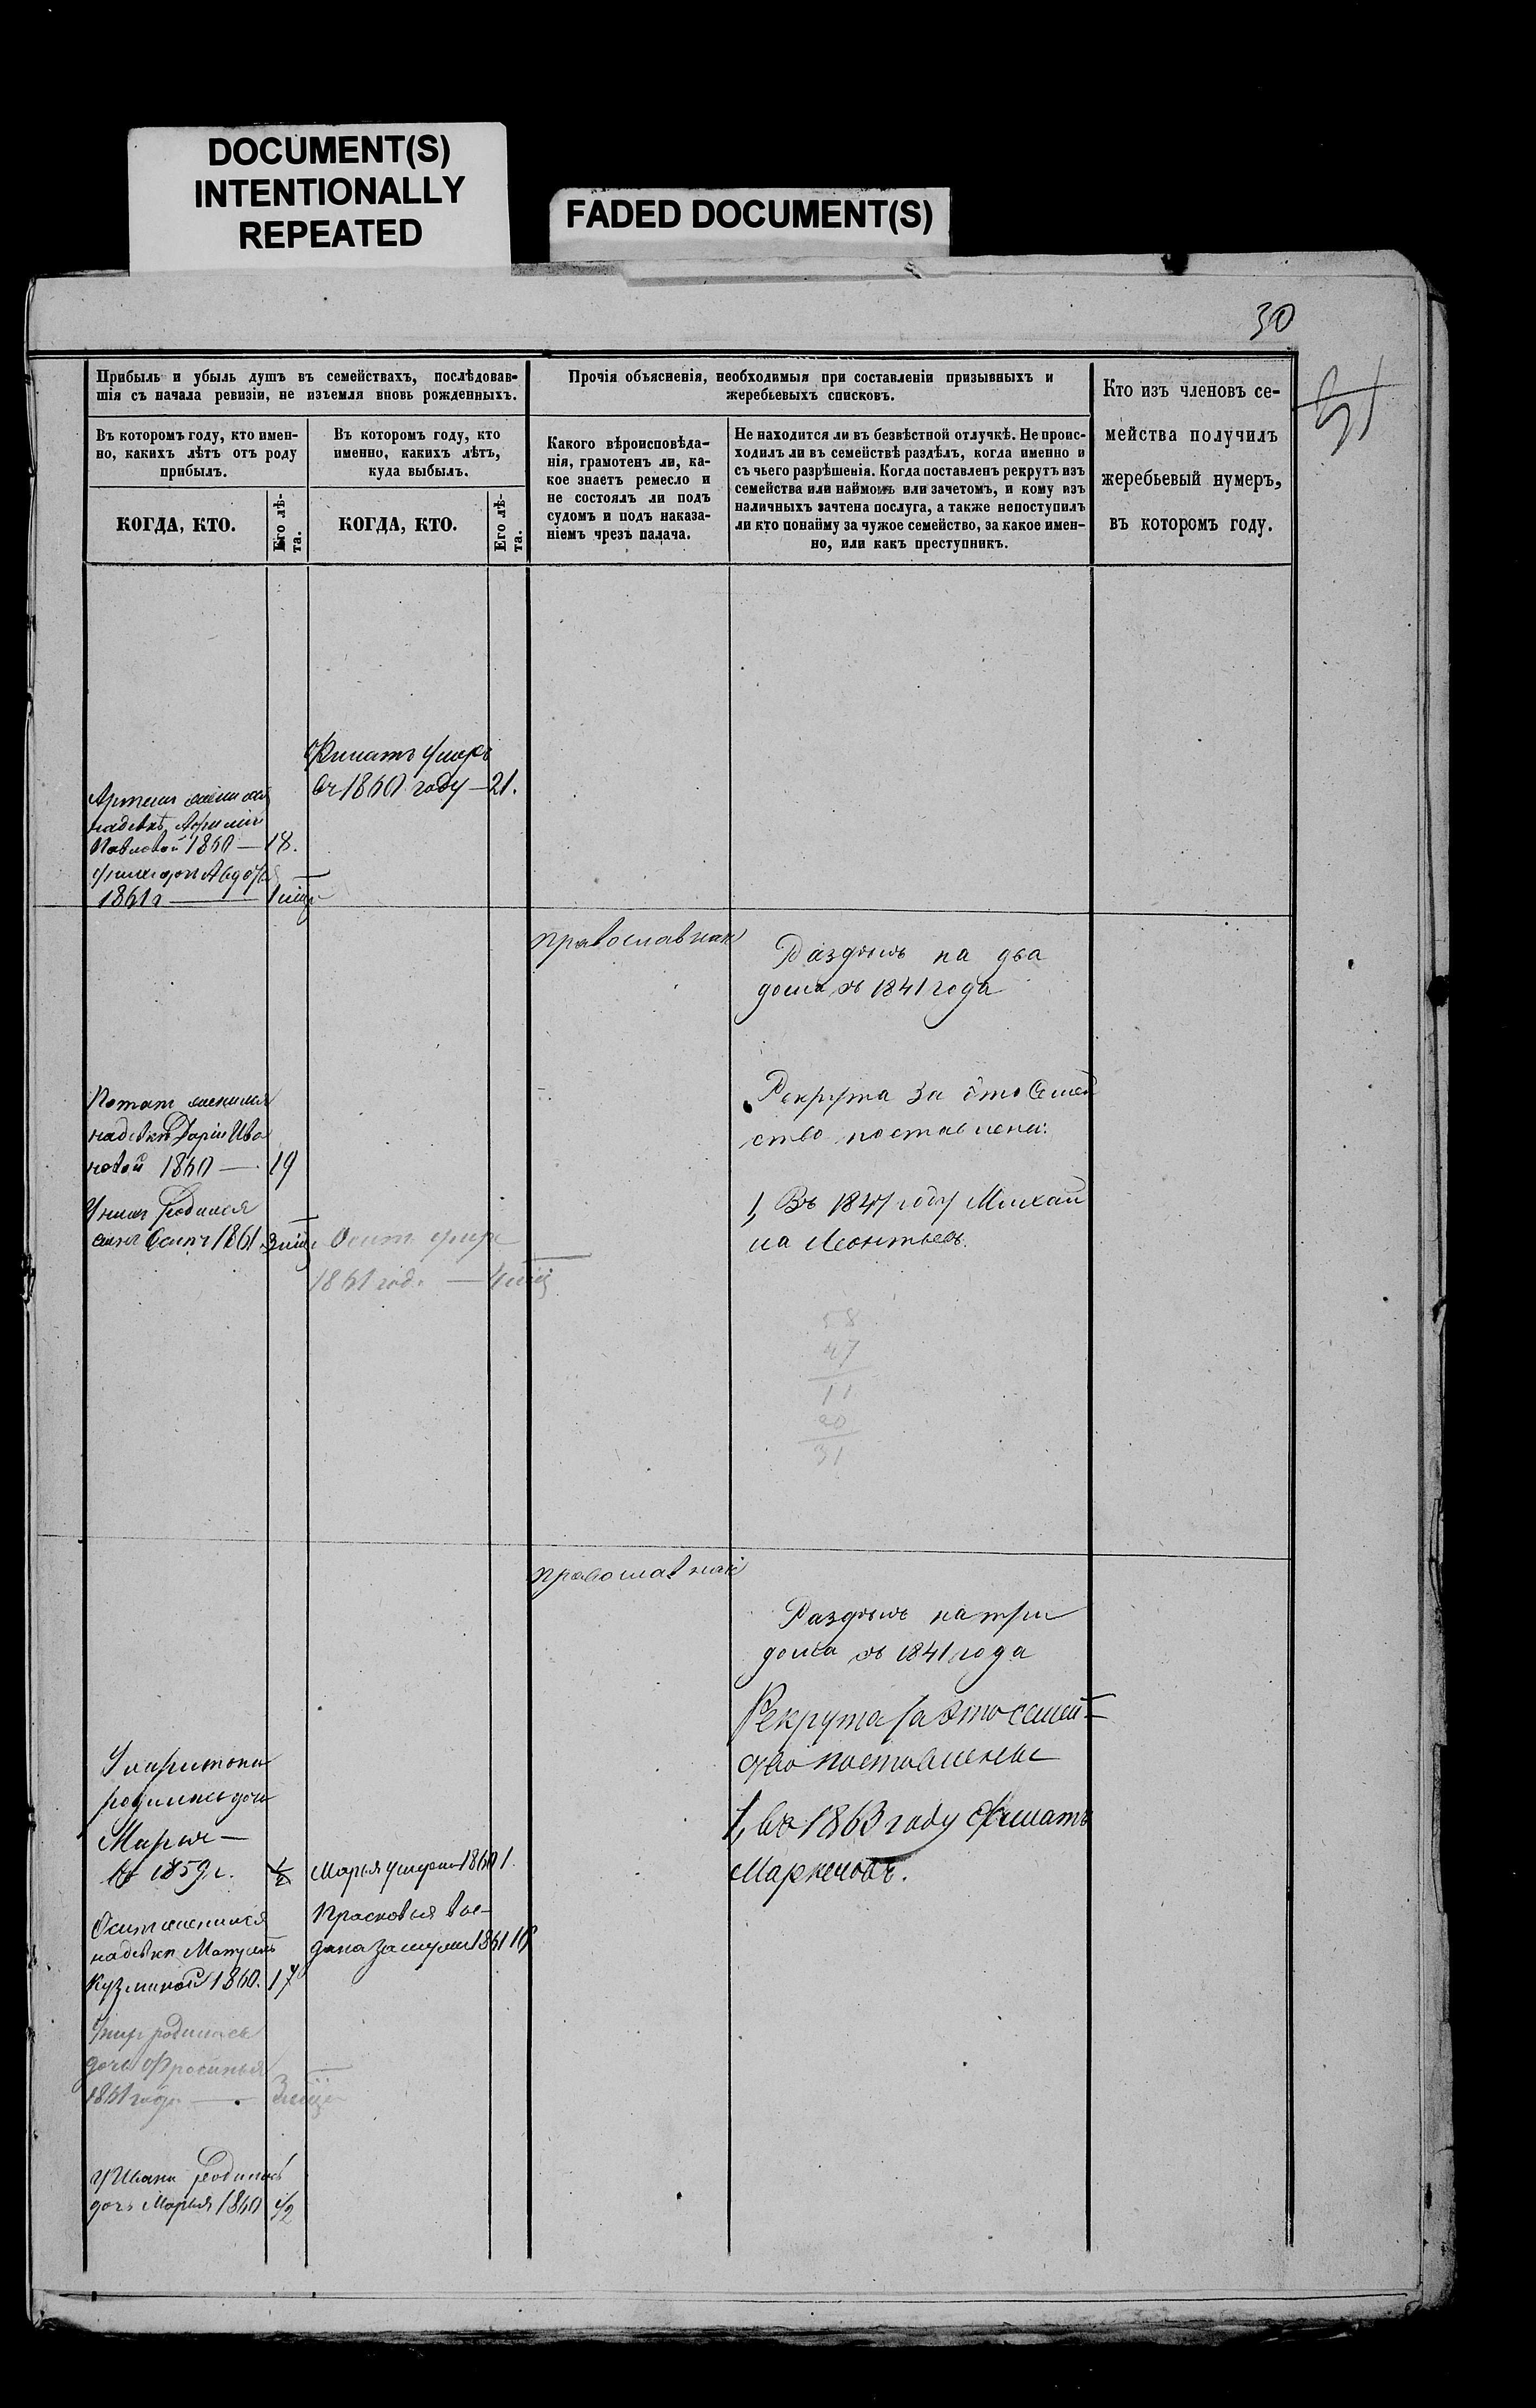 DOCUMENT(S)
INTENTIONALLY
REPEATED
FADED DOCUMENT(S)
30
31
Прибыль и убыль душъ въ семействахъ, послѣдовав-
шія съ начала ревизіи, не изъемля вновь рожденныхъ.
Въ которомъ году, кто имен-
но, какихъ лѣтъ отъ роду
прибылъ.
КОГДА, КТО.
Его лѣ-
та.
Въ которомъ году, кто
именно, какихъ лѣтъ,
куда выбылъ.
КОГДА, КТО.
Его лѣ-
та.
Прочія объясненія, необходимыя при составленіи призывныхъ и
жеребьевыхъ списковъ.
Какого вѣроисповѣда-
нія, грамотенъ ли, ка-
кое знаетъ ремесло и
не состоялъ ли подъ
судомъ и подъ наказа-
ніемъ чрезъ палача.
Не находится ли въ безвѣстной отлучкѣ. Не проис-
ходилъ ли въ семействѣ раздѣлъ, когда именно и
съ чьего разрѣшенія. Когда поставленъ рекрутъ изъ
семейства или наймомъ или зачетомъ, и кому изъ
наличныхъ зачтена послуга, а также непоступилъ
ли кто понайму за чужое семейство, за какое имен-
но, или какъ преступникъ.
Кто изъ членовъ се-
мейства получилъ
жеребьевый нумеръ,
въ которомъ году.
Филатъ умеръ
въ 1860 году — 21.
Артемъ женился
надевкѣ
Павловой 1860 — 18.
1861 г —
православнаго
Раздѣлъ на два
дома въ 1841 года
Потапъ женился
надевкѣ Дарьи Ива
новой 1860 — 19
родился
сынъ Осипъ 1861 3 мѣс
Осипъ умеръ
1861 год. — 4 мѣс
Рекрута за это Семей
ство поставлены:
1, Въ 1847 году Михаи
ла Леонтьевъ
58
47
11
20
31
православнаго
Раздѣлъ на три
дома въ 1841 года
Рекрута за это семей-
ство поставлены
1, въ 1863 году Филатъ
Маркеловъ.
Ухаритона
родилась дочь
Марья —
въ 1859 г. 1/2
Марья умерла 1860 1.
Осипъ женился
надевкѣ
Кузминой 1860. 17
Прасковья вы-
дана замужъ 1861 18
родилась
дочь Фросинья
1861 году — 3 мѣс
у Ивана родилась
дочь Марья 1860 1/2